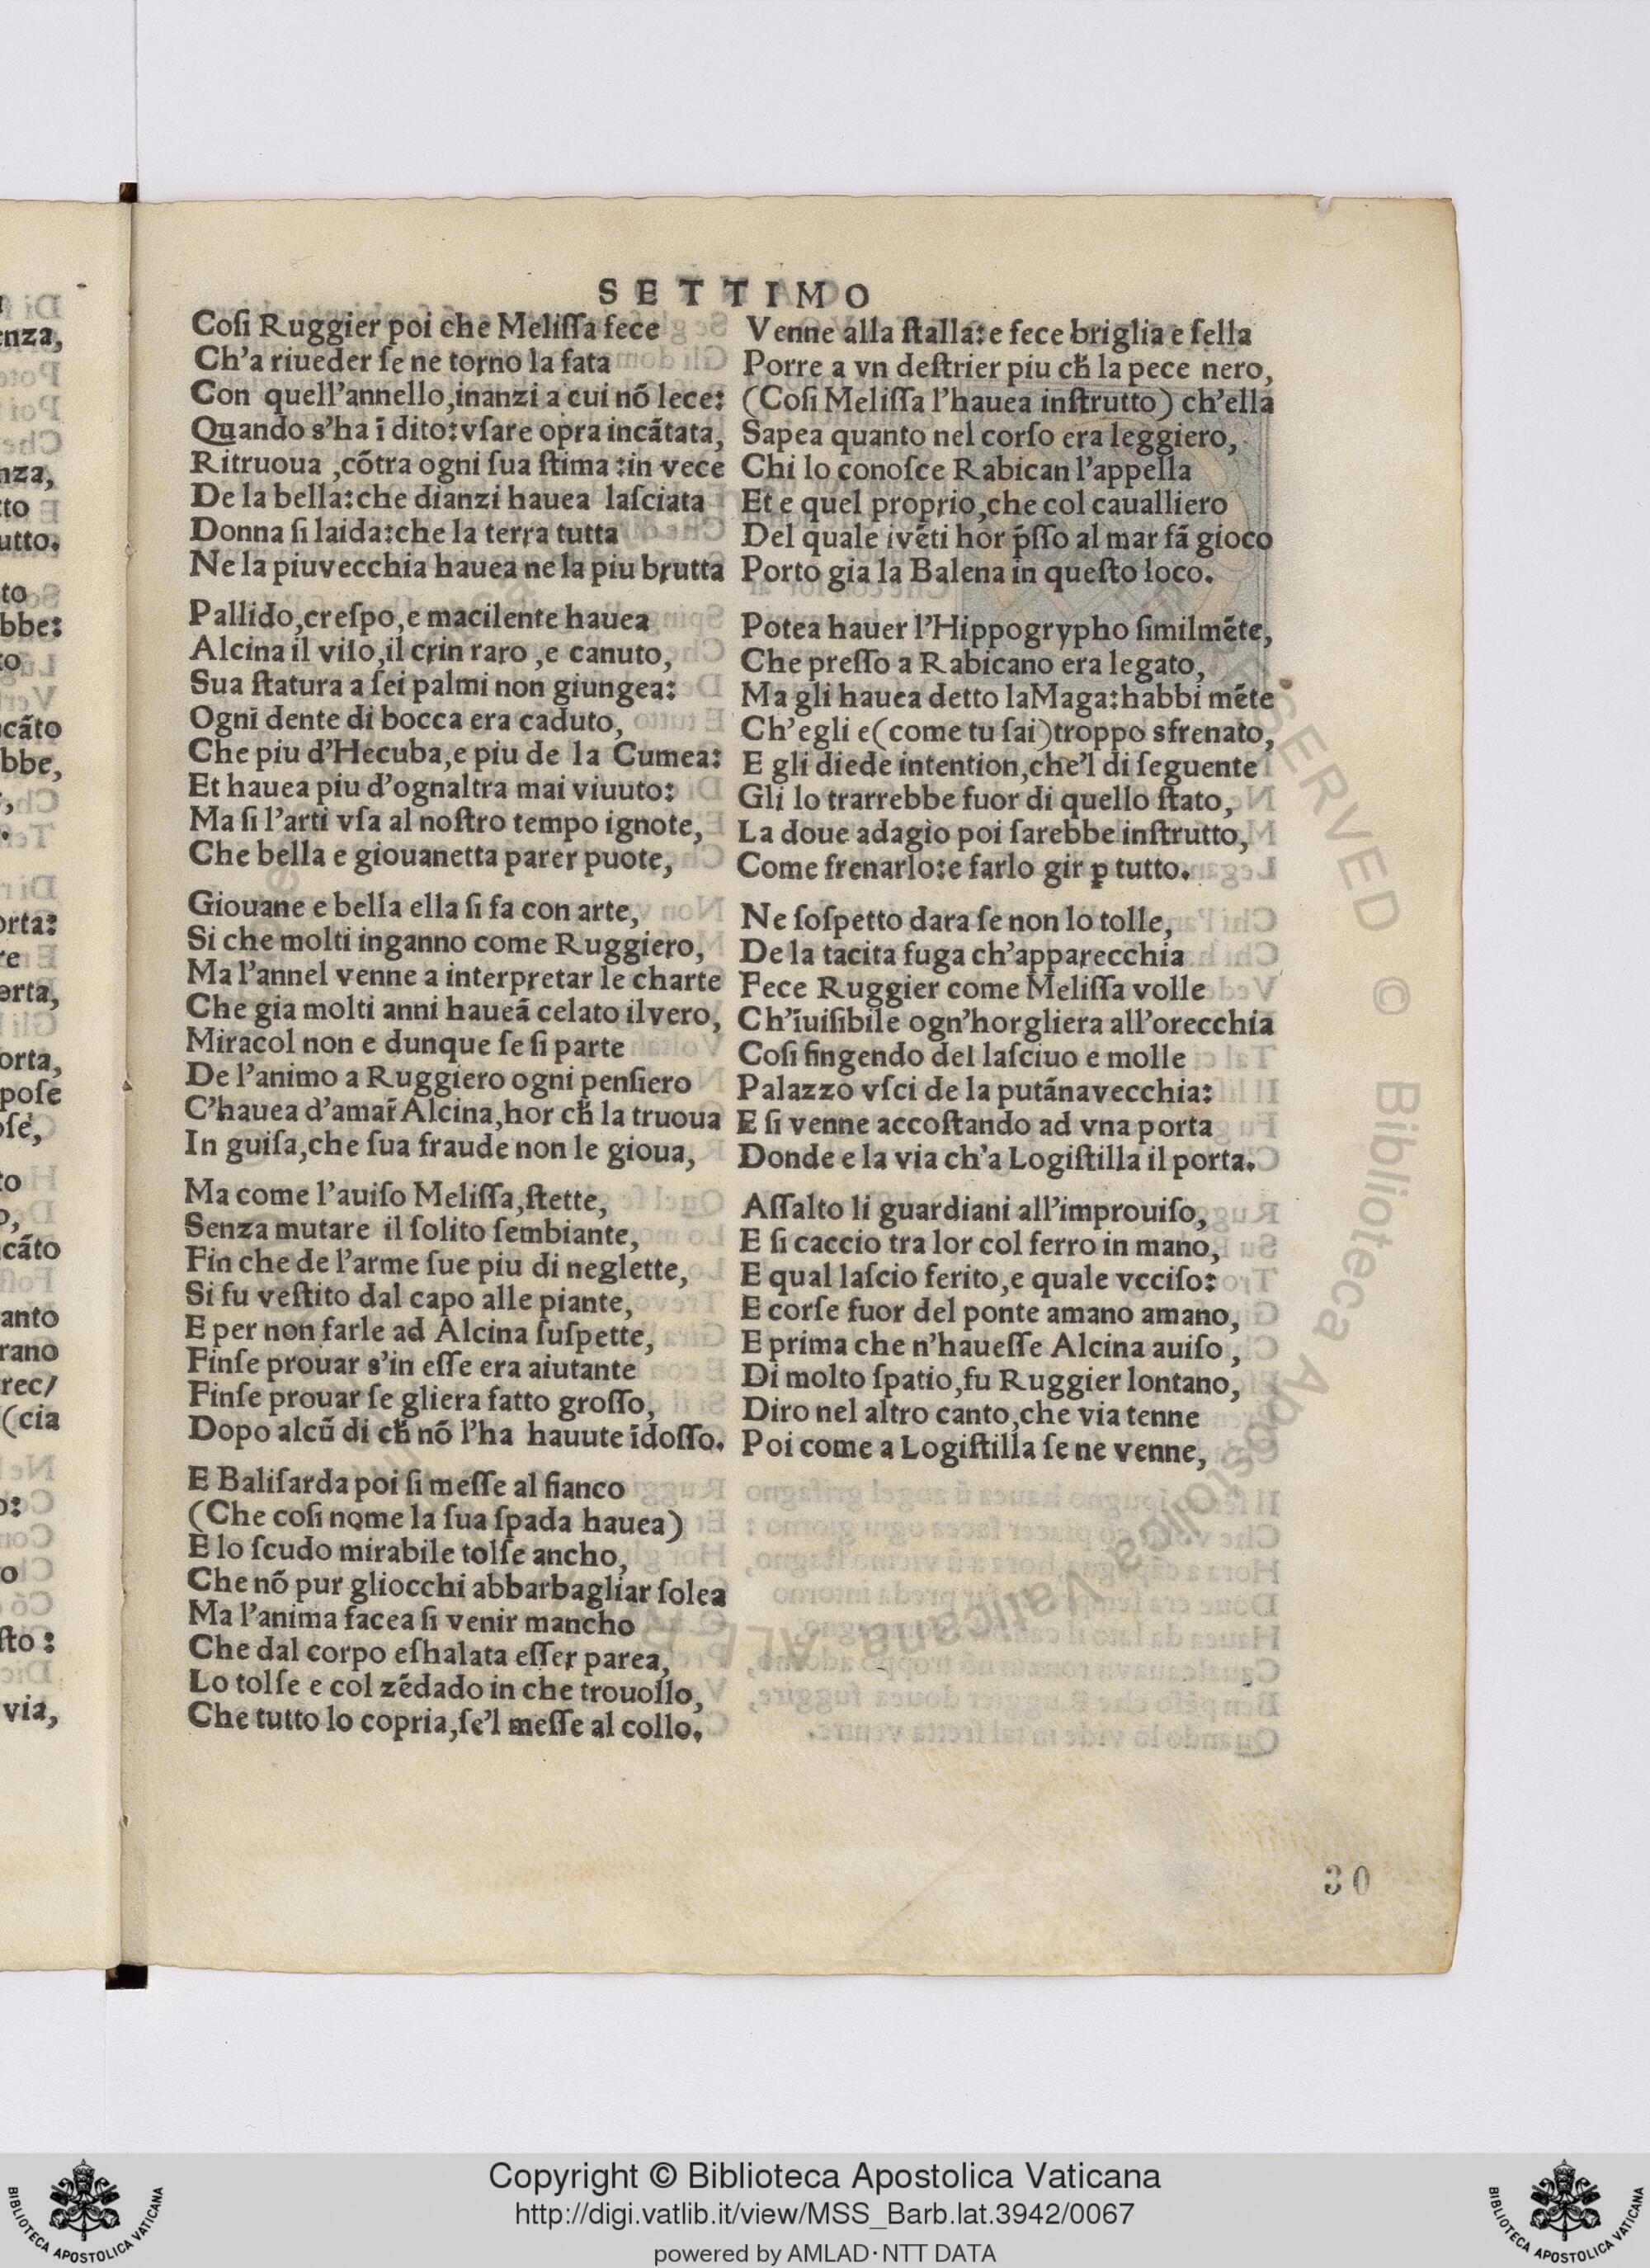 SETTIMO
Coſi Ruggier poi che Meliſſa fece
Ch'a riueder ſe ne torno la fata
Con quell'annello,inanzi a cui nõ lece:
Quando s'ha ĩ dito:vſare opra incãtata,
Ritruoua ,cõtra ogni ſua ſtima :in vece
De la bella:che dianzi hauea laſciata
Donna ſi laida:che la terra tutta
Ne la piuvecchia hauea ne la piu brutta
Pallido,creſpo,e macilente hauea
Alcina il viſo,il crin raro ,e canuto,
Sua ſtatura a ſei palmi non giungea:
Ogni dente di bocca era caduto,
Che piu d'Hecuba,e piu de la Cumea:
Et hauea piu d'ognaltra mai viuuto:
Ma ſi l'arti vſa al noſtro tempo ignote,
Che bella e giouanetta parer puote,
Giouane e bella ella ſi fa con arte,
Si che molti inganno come Ruggiero,
Ma l'annel venne a interpretar le charte
Che gia molti anni haueã celato ilvero,
Miracol non e dunque ſe ſi parte
De l'animo a Ruggiero ogni penſiero
C'hauea d'amar̃ Alcina,hor ch̃ la truoua
In guiſa,che ſua fraude non le gioua,
Ma come l'auiſo Meliſſa,ſtette,
Senza mutare il ſolito ſembiante,
Fin che de l'arme ſue piu di neglette,
Si fu veſtito dal capo alle piante,
E per non farle ad Alcina ſuſpette,
Finſe prouar s'in eſſe era aiutante
Finſe prouar ſe gliera fatto groſſo,
Dopo alcũ di ch̃ nõ l'ha hauute ĩdoſſo.
E Baliſarda poi ſi meſſe al fianco
(Che coſi nome la ſua ſpada hauea)
E lo ſcudo mirabile tolſe ancho,
Che nõ pur gliocchi abbarbagliar ſolea
Ma l'anima facea ſi venir mancho
Che dal corpo eſhalata eſſer parea,
Lo tolſe e col zẽdado in che trouollo,
Che tutto lo copria,ſe'l meſſe al collo.
Venne alla ſtalla:e fece briglia e ſella
Porre a vn deſtrier piu ch̃ la pece nero,
(Coſi Meliſſa l'hauea inſtrutto) ch'ella
Sapea quanto nel corſo era leggiero,
Chi lo conoſce Rabican l'appella
Et e quel proprio,che col caualliero
Del quale ivẽti hor p̃ſſo al mar fã gioco
Porto gia la Balena in queſto loco.
Potea hauer l'Hippogrypho ſimilmẽte,
Che preſſo a Rabicano era legato,
Ma gli hauea detto laMaga:habbi mẽte
Ch'egli e(come tu ſai)troppo sfrenato,
E gli diede intention,che'l di ſeguente
Gli lo trarrebbe fuor di quello ſtato,
La doue adagio poi ſarebbe inſtrutto,
Come frenarlo:e farlo gir ꝑ tutto.
Ne ſoſpetto dara ſe non lo tolle,
De la tacita fuga ch'apparecchia
Fece Ruggier come Meliſſa volle
Ch'ĩuiſibile ogn'horgliera all'orecchia
Coſi fingendo del laſciuo e molle
Palazzo vſci de la putãnavecchia:
E ſi venne accoſtando ad vna porta
Donde e la via ch'a Logiſtilla il porta.
Aſſalto li guardiani all'improuiſo,
E ſi caccio tra lor col ferro in mano,
E qual laſcio ferito,e quale vcciſo:
E corſe fuor del ponte amano amano,
E prima che n'haueſſe Alcina auiſo ,
Di molto ſpatio,fu Ruggier lontano,
Diro nel altro canto,che via tenne
Poi come a Logiſtilla ſe ne venne,
30
enza,
nza,
tto
utto.
to
bbe:
to
cãto
bbe,
orta:
re
erta,
orta,
poſe
oſe,
to
o,
cãto
anto
rano
rec/
(cia
o:
o
ſto :
via,
RESERVED © Biblioteca Apostolica Vaticana ALL R
Copyright © Biblioteca Apostolica Vaticana
http://digi.vatlib.it/view/MSS_Barb.lat.3942/0067
powered by AMLAD·NTT DATA
BIBLIOTECA APOSTOLICA VATICANA
BIBLIOTECA APOSTOLICA VATICANA